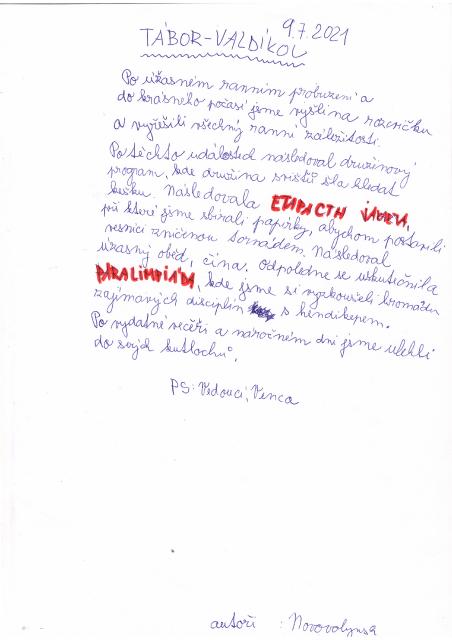 9.7.2021
TÁBOR-VALDÍKOV
Po úžasném ranním probuzení a
do krásného počasí jsme vyšli na rozcvičku
a vyřešili všechny ranní záložitosti.
Po těchto událostech následoval družinový
program, kde družina svišťů šla hledat
kešku. Následovala ETAPA CTH
při které jsme sbírali papírky, abychom postavili
vesnici zničenou tornádem. Následoval
úžasný oběd, čína. Odpoledne se uskutečnila
PARALIMPIÁDA, kde jsme si vyzkoušeli hromadu
zajímavých disciplín s hendikepem.
Po vydatné večeři a náročném dni jsme ulehli
do svých kutlochů.
PS: Vedoucí, Venca
autoři :